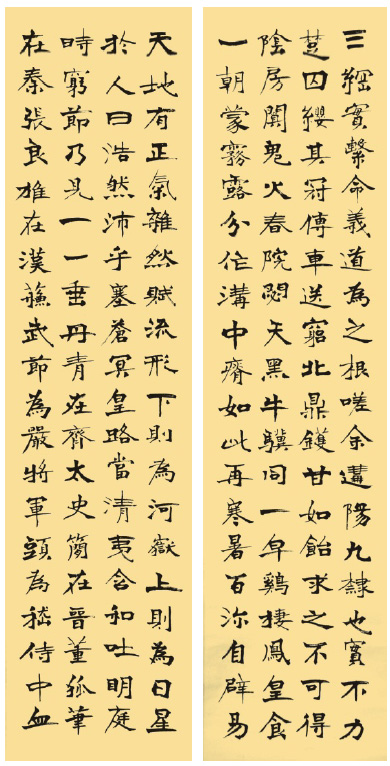 天地有正氣雜然賦流形下則為河嶽上則為日星
於人曰浩然沛乎塞蒼冥皇路當清夷含和吐明庭
時窮節乃見一一垂丹青在齊太史簡在晉董狐筆
在秦張良椎在漢蘓武節為嚴將軍頭為嵇侍中血
三綱實繫命義道為之根嗟余遘陽九隸也實不力
楚囚纓其冠傳車送窮北鼎鑊甘如飴求之不可得
陰房闐鬼火春院閟天黑牛驥同一皁鷄棲鳳皇食
一朝蒙霧露分作溝中瘠如此再寒暑百沴自辟易